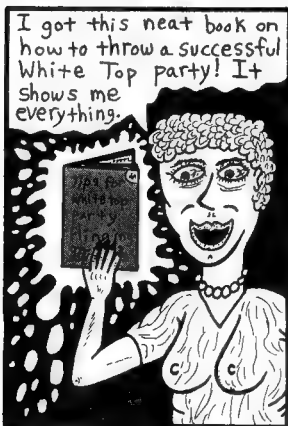 I got this neat book on
how to throw a successful
White Top party! It
shows me
everything.
Tips for
white top
party